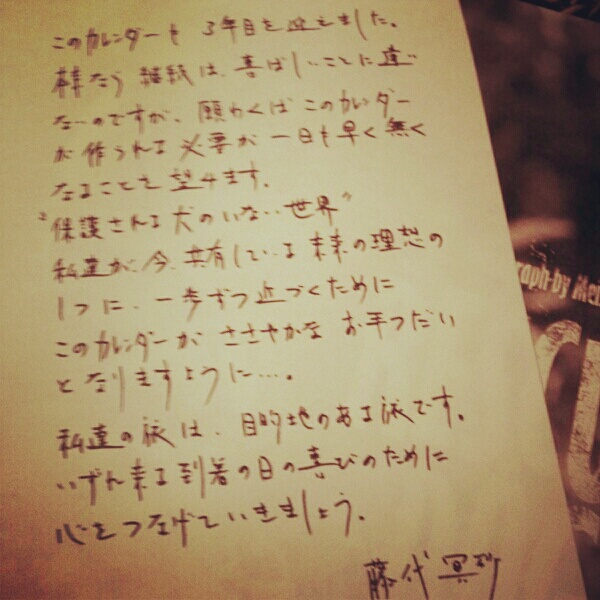 このカレンダーも 3年目を迎えました。
様なう 継続は、喜ばしいことに違い
ないのですが、願わくば このカレンダー
が作られる 必要が 一日も早く無く
なることを望みます。
"保護される犬のいない世界"
私達が、今、共有している未来の理想の
1つに、一歩ずつ近づくために
このカレンダーが ささやかな お手つだい
となりますように…。
私達の旅は、目的地のある旅です。
いずれ来る到着の日の喜びのために
心をつなげていきましょう。
藤代冥砂
graph by Mei